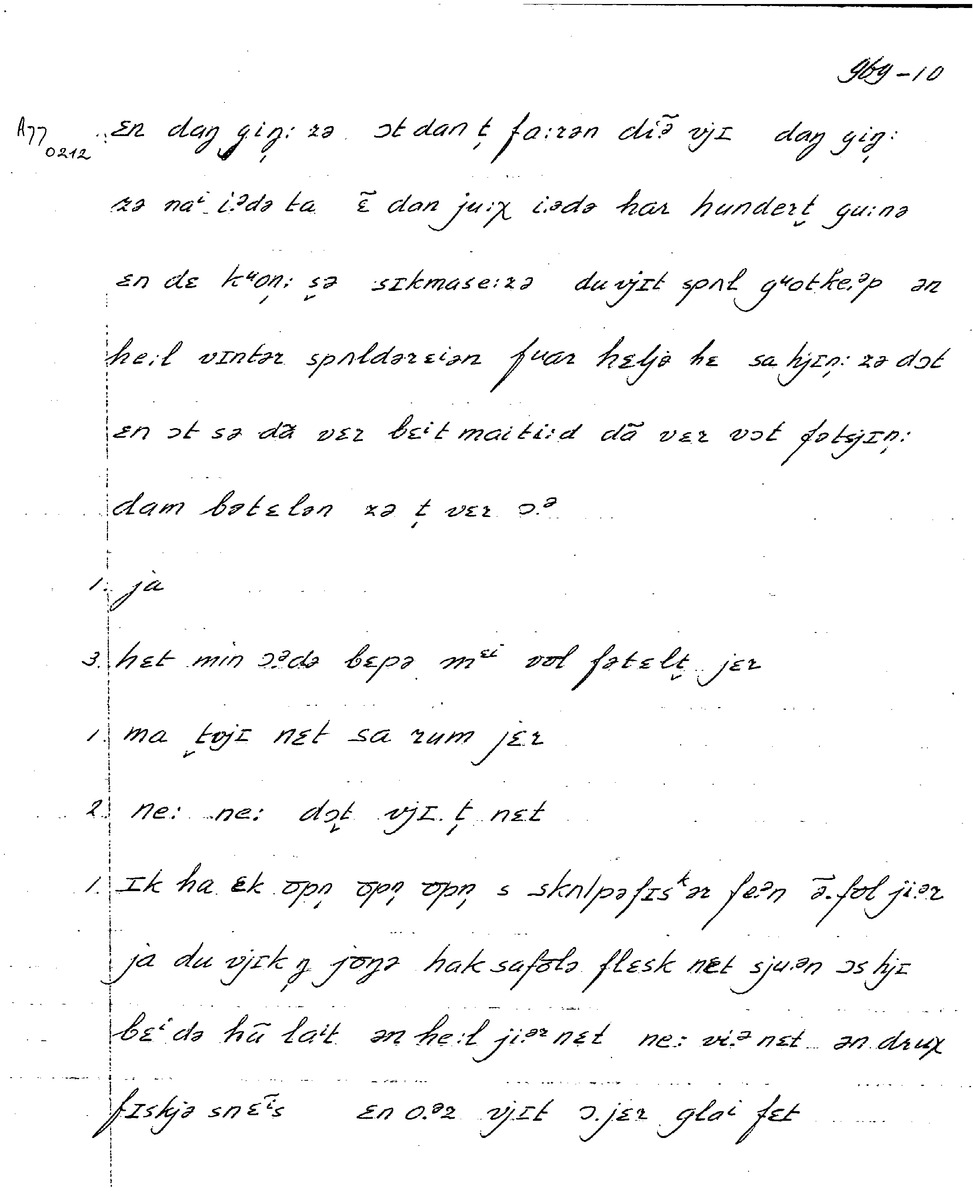 969-10
A77 0212 ɛn daŋ giŋ̩: zə ɔt dan t̩ fa:rən diə̃ vjɪ daŋ giŋ̩:
zə naⁱ i.ᵊdə ta ɛ̃ dan ju:χ i:ədə har hundert̬ gu:nə
ɛn dɛ kᵘon̩: s̬ə sɪkmase:zə du vjɪt spʌl gᵘotke.ᵊp ən
he:l vɪntər spʌldərɛiən fuar hɛljə hɛ sa hjɪn̩: zə dɔt
ɛn ɔt sə dã vɛr bɛⁱt maiti:d dã vɛr vɔt fətjɪn̩:
dam bətɛlən zə t̩ vɛr ɔ.ᵊ
1. ja
3. hɛt min ɔ.ᵊdə bɛpə mᵋⁱ vol fətɛlt̬ jɛr
1. ma t̬ojɪ nɛt sa rum jɛr
2. ne: ne: dɔt̬ vjɪ. t̩ nɛt
1. ɪk ha ɛk ʊpn̩ ʊpn̩ ʊpn̩ s skʌlpəfɪsᵏər fe.ᵊn ə̃.fol ji.ᵊr
ja du vjɪk ŋ̩ joŋə hak safolə flɛsk nɛt sju.ᵊn ɔs hjɪ
bɛⁱ də hũ laⁱt ən he:l ji.ᵊr nɛt ne: vi.ᵊ nɛt ən druχ
fɪskjə snɛ̃ⁱs ɛn o.ᵊr vjɪt ɔ.jɛr glaⁱ fɛt